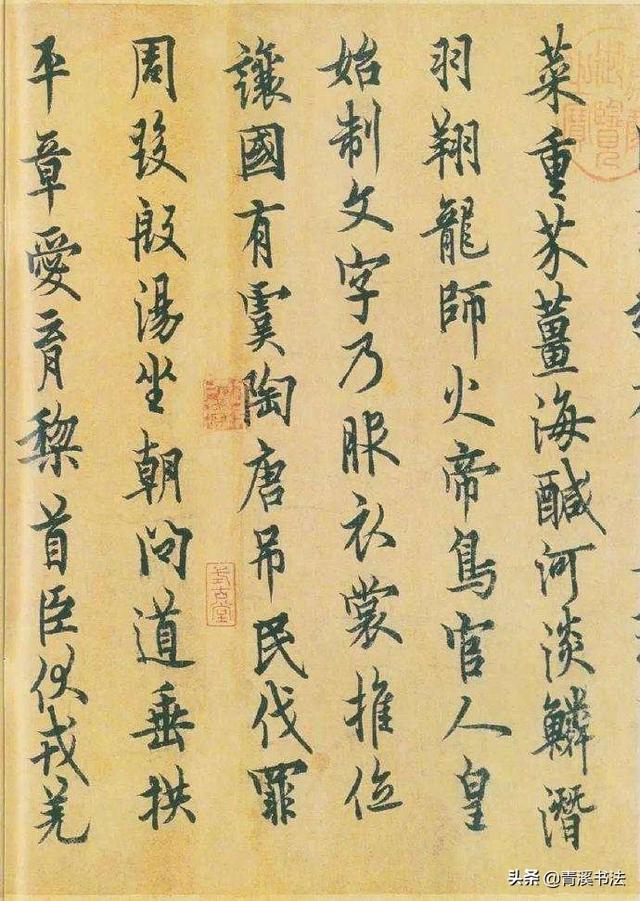 菜重芥薑海醎河淡鱗潛
羽翔龍師火帝鳥官人皇
始制文字乃服衣裳推位
讓國有虞陶唐吊民伐罪
周發殷湯坐朝問道垂拱
平章愛育黎首臣伏戎羌
式古堂
头条 @青溪书法